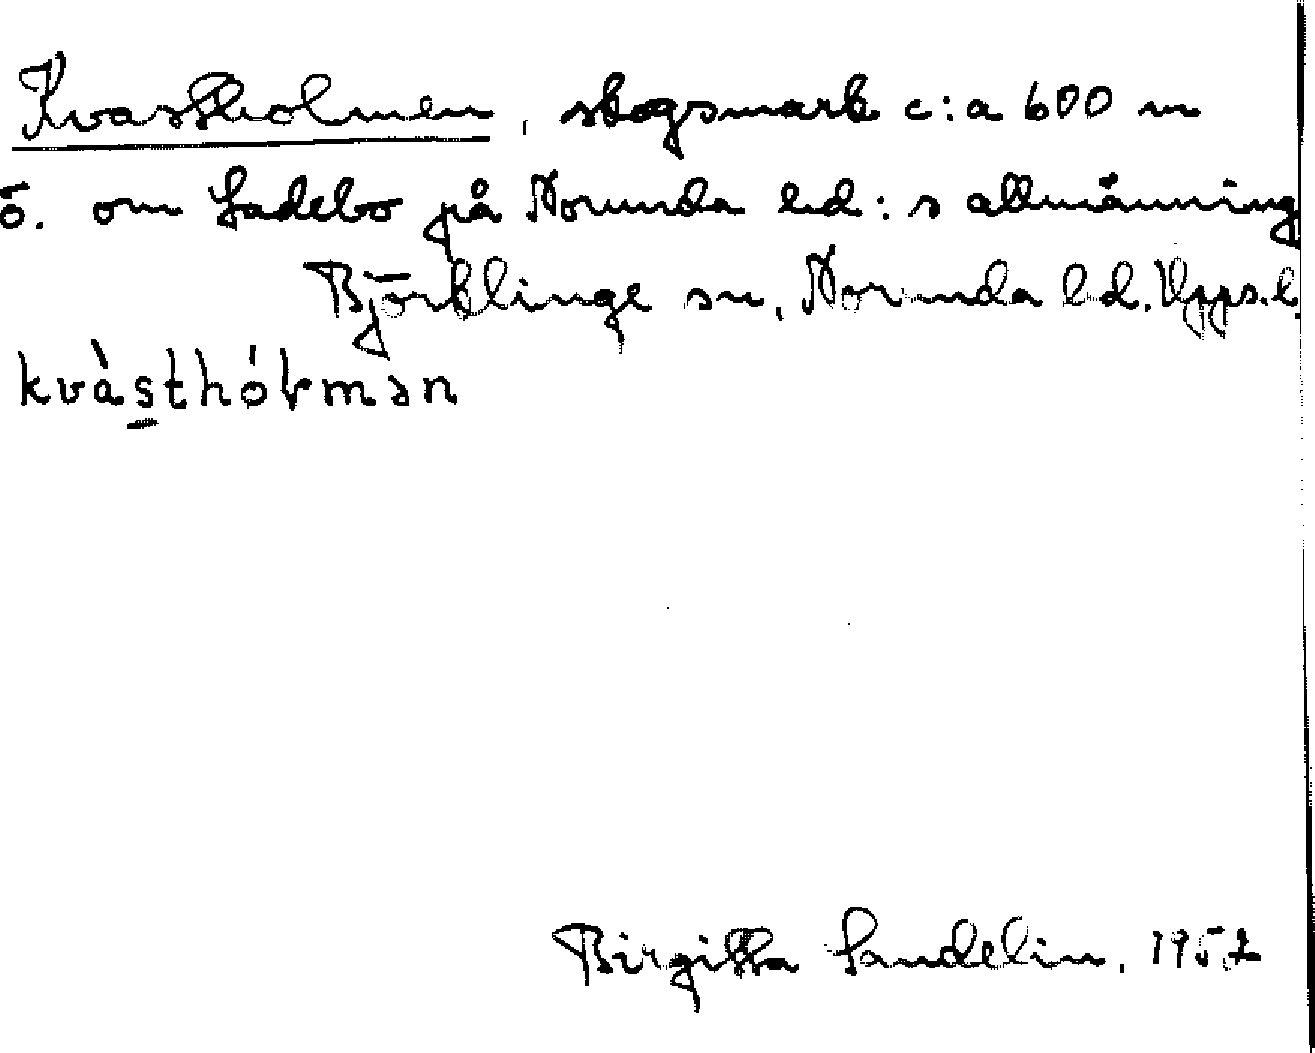 Kvastholmen, skogsmark c:a 600 m
ö. om Ladebo på Norunda hd:s allmänning
Björklinge sn, Norunda hd. Upps.l.
kvàsthóɫmən
Birgitta Sandelin, 1952